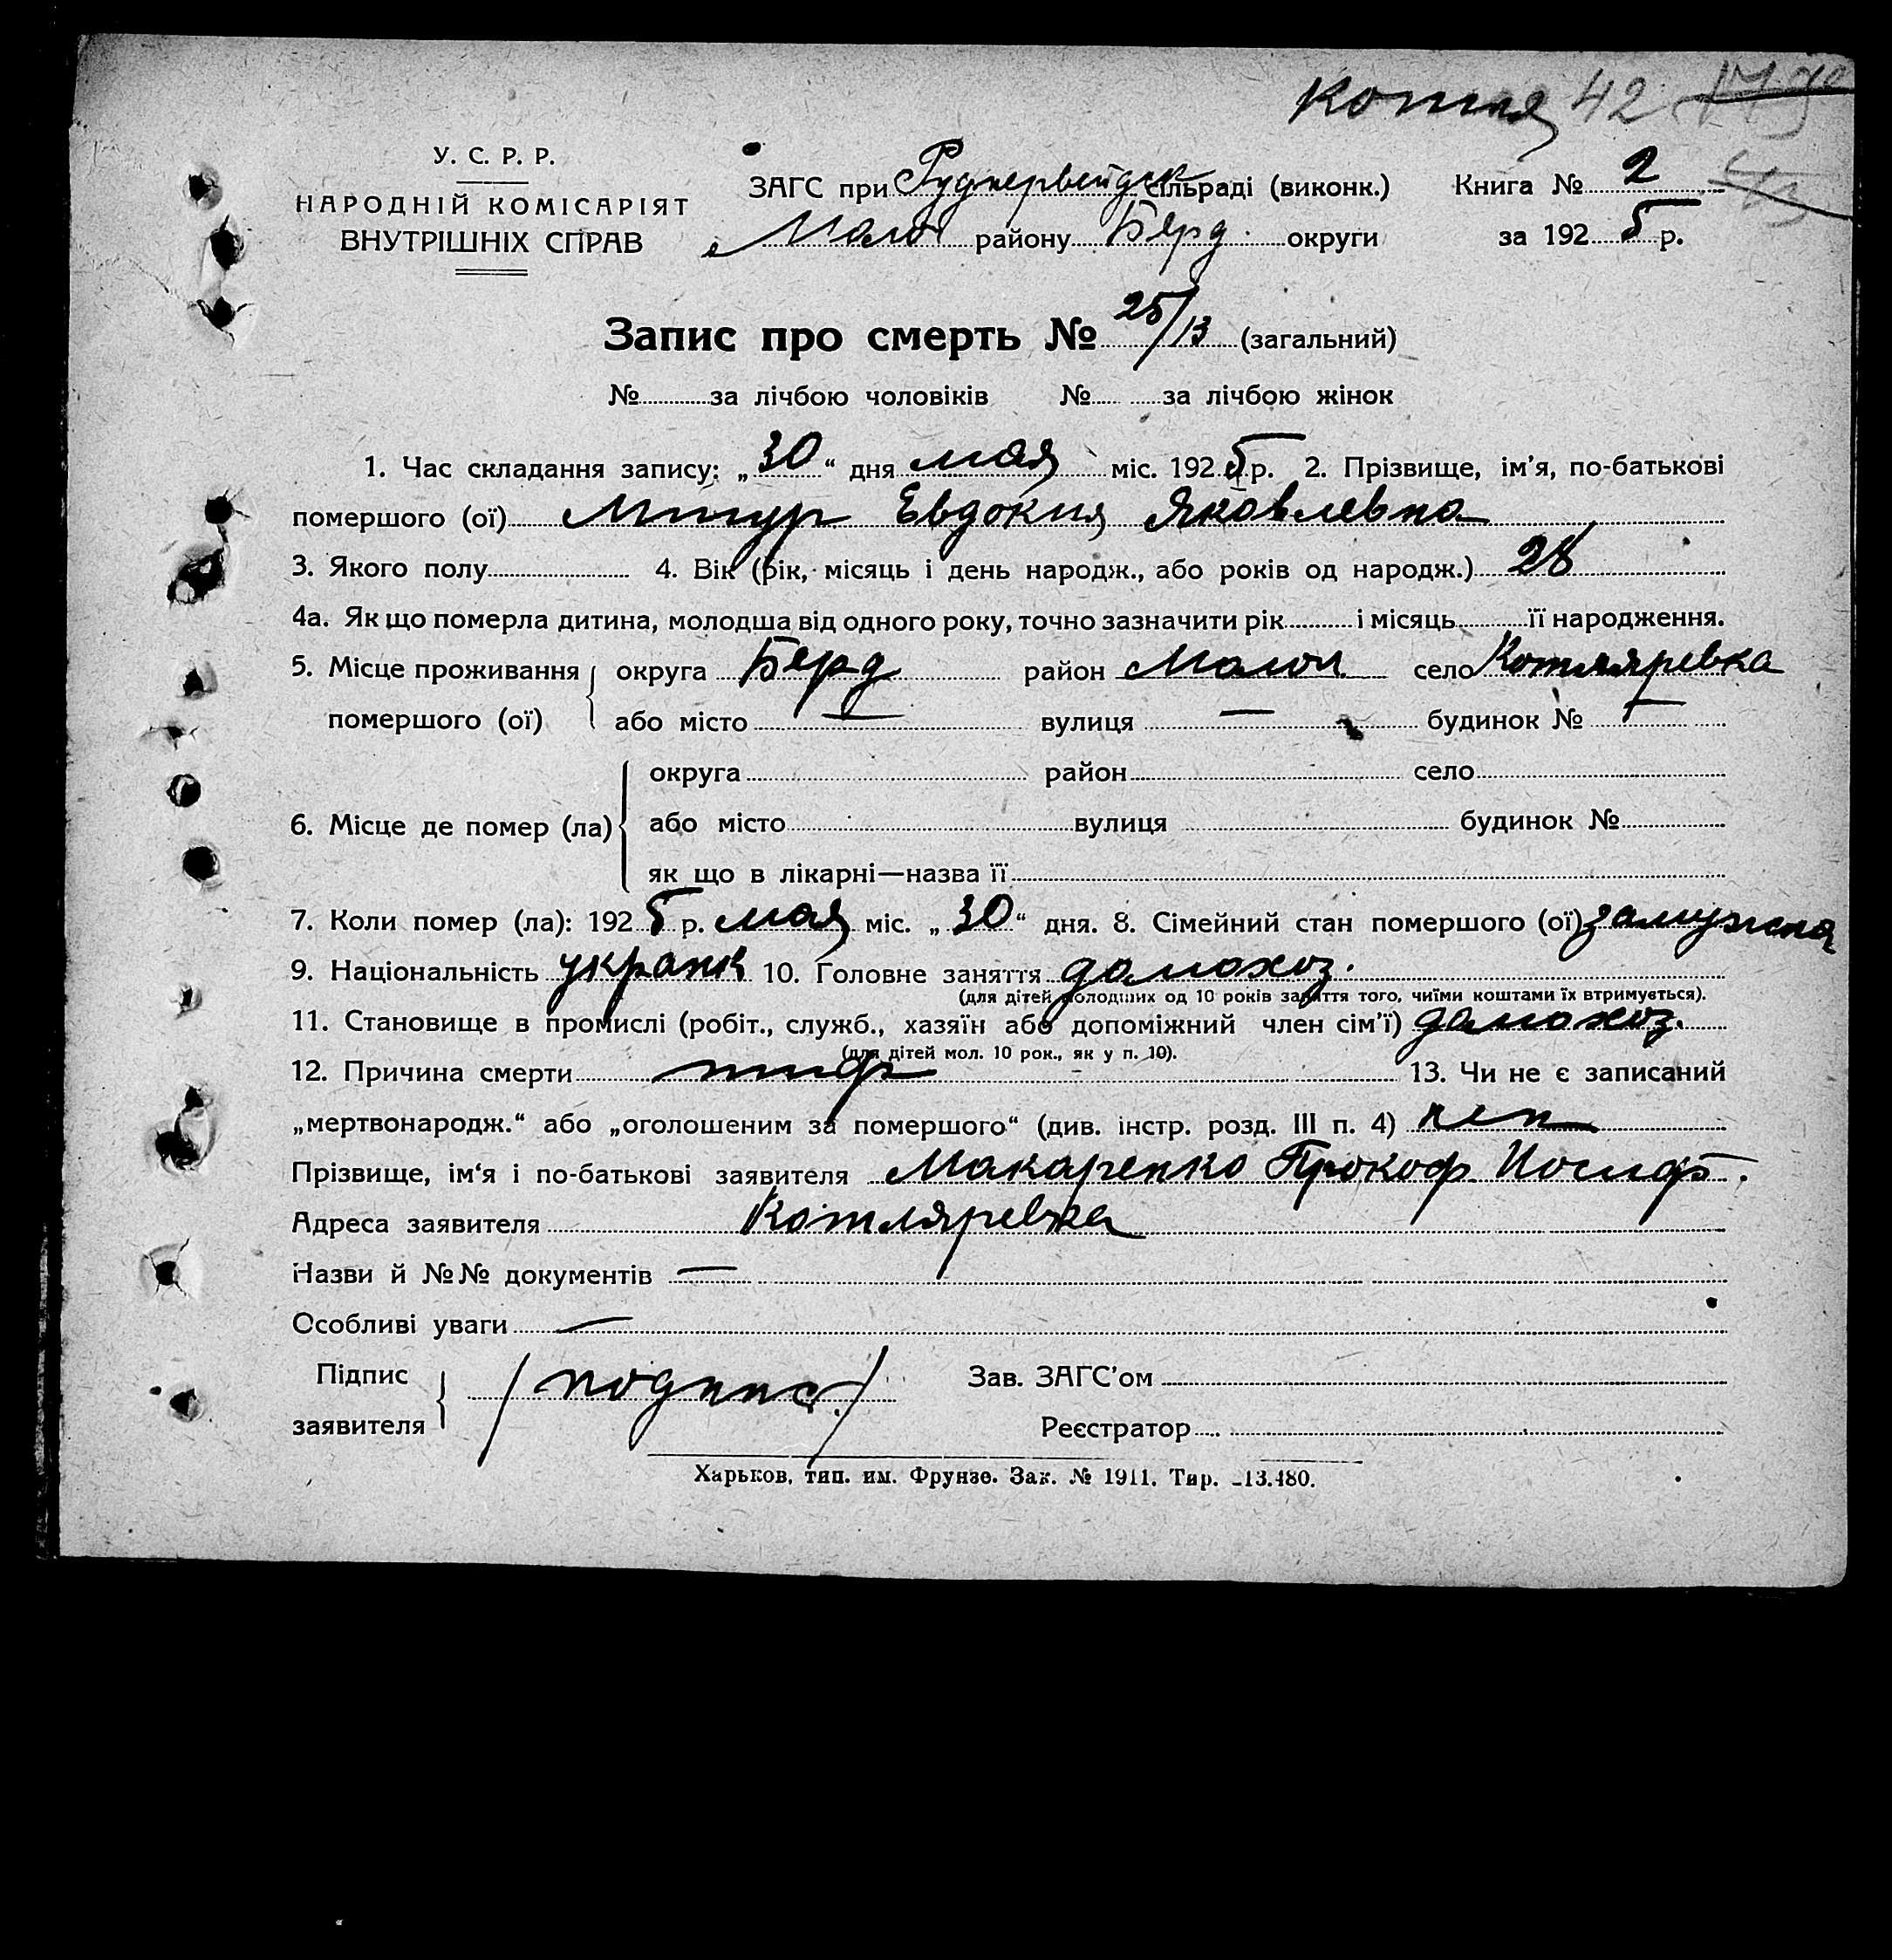 Котля 42
У. С. Р. Р.
НАРОДНІЙ КОМІСАРІЯТ
ВНУТРІШНІХ СПРАВ
ЗАГС при сільраді (виконк.) Книга № 2
району Берд. округи за 1925 р.
Запис про смерть № 25/13 (загальний)
№ за лічбою чоловіків № за лічбою жінок
1. Час складання запису: „30“ дня мая міс. 1925 р. 2. Прізвище, ім’я, по-батькові
помершого (ої) Евдокия Яковлевна
3. Якого полу 4. Вік (рік, місяць і день народж., або років од народж.) 28
4а. Як що померла дитина, молодша від одного року, точно зазначити рік і місяць її народження.
5. Місце проживання округа Берд район село Котляревка
помершого (ої) або місто — вулиця — будинок № —
округа район село
6. Місце де помер (ла) або місто вулиця будинок №
як що в лікарні—назва її
7. Коли помер (ла): 1925 р. мая міс. „30“ дня. 8. Сімейний стан помершого (ої) замужна
9. Національність 10. Головне заняття домохоз.
(для дітей молодших од 10 років заняття того, чиїми коштами їх втримується).
11. Становище в промислі (робіт., служб., хазяїн або допоміжний член сім’ї) домохоз.
(для дітей мол. 10 рок., як у п. 10).
12. Причина смерти тиф 13. Чи не є записаний
„мертвонародж.“ або „оголошеним за помершого“ (див. інстр. розд. III п. 4) нет
Прізвище, ім‘я і по-батькові заявителя Макаренко Прокоф. Иосиф.
Адреса заявителя Котляревка
Назви й №№ документів —
Особливі уваги —
Підпис
заявителя /подпис./ Зав. ЗАГС’ом
Реєстратор
Харьков, тип. им. Фрунзе. Зак. № 1911. Тир. 13.480.